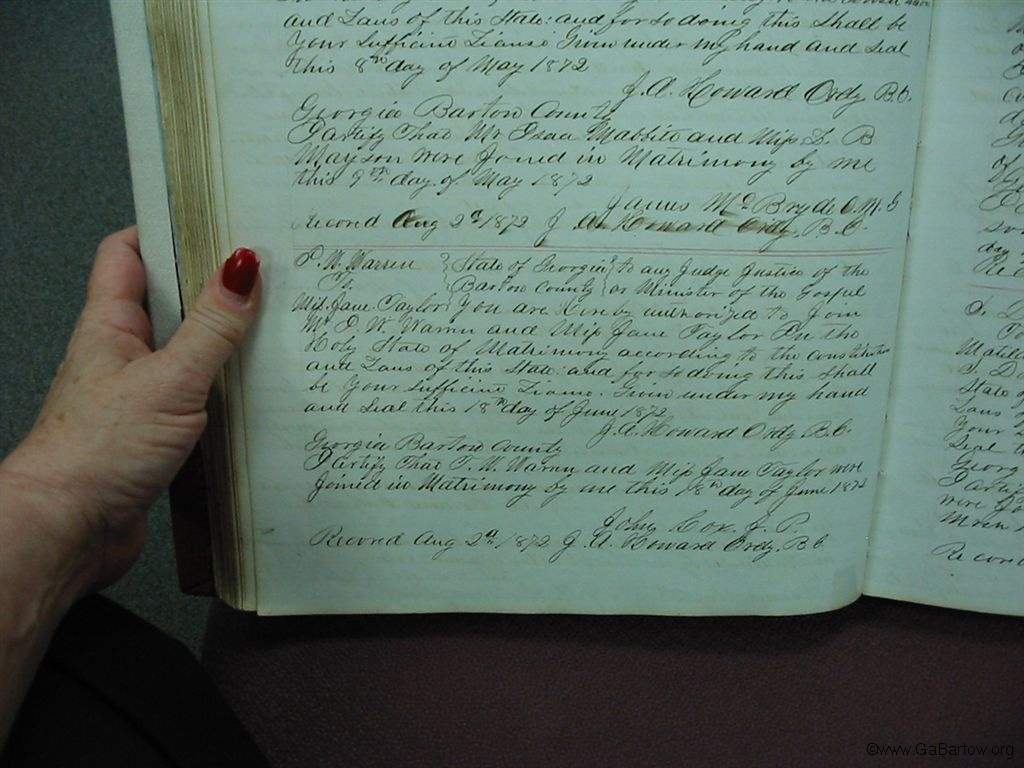 and Laws of this State: and for so doing this Shall be
Your Sufficient License Given under my hand and Seal
this 8th day of May 1872
J. A. Howard Ordy B.C.
Georgia Bartow County
I Certify that Mr Isaa Mabbito and Miss L. B
Mayson were Joined in Matrimony by me
this 9th day of May 1872
James McBryde O.M.G
Record Aug 2d 1872 J. A. Howard Ordy, B.C.
P. W. Warren } State of Georgia } to any Judge Justice of the
To } Bartow County } or Minister of the Gospel
Miss Jane Taylor You are Hereby authorized to Join
Mr P. W. Warren and Miss Jane Taylor In the
Holy State of Matrimony according to the constitution
and Laws of this State: and for so doing this Shall
be Your Sufficient License. Given under my hand
and Seal this 18th day of June 1872
J. A. Howard Ordy B.C.
Georgia Bartow County
I Certify that P. W. Warren and Miss Jane Taylor were
Joined in Matrimony by me this 18th day of June 1872
John Cox J. P.
Record Aug 2d 1872 J. A. Howard Ordy. B C
©www.GaBartow.org